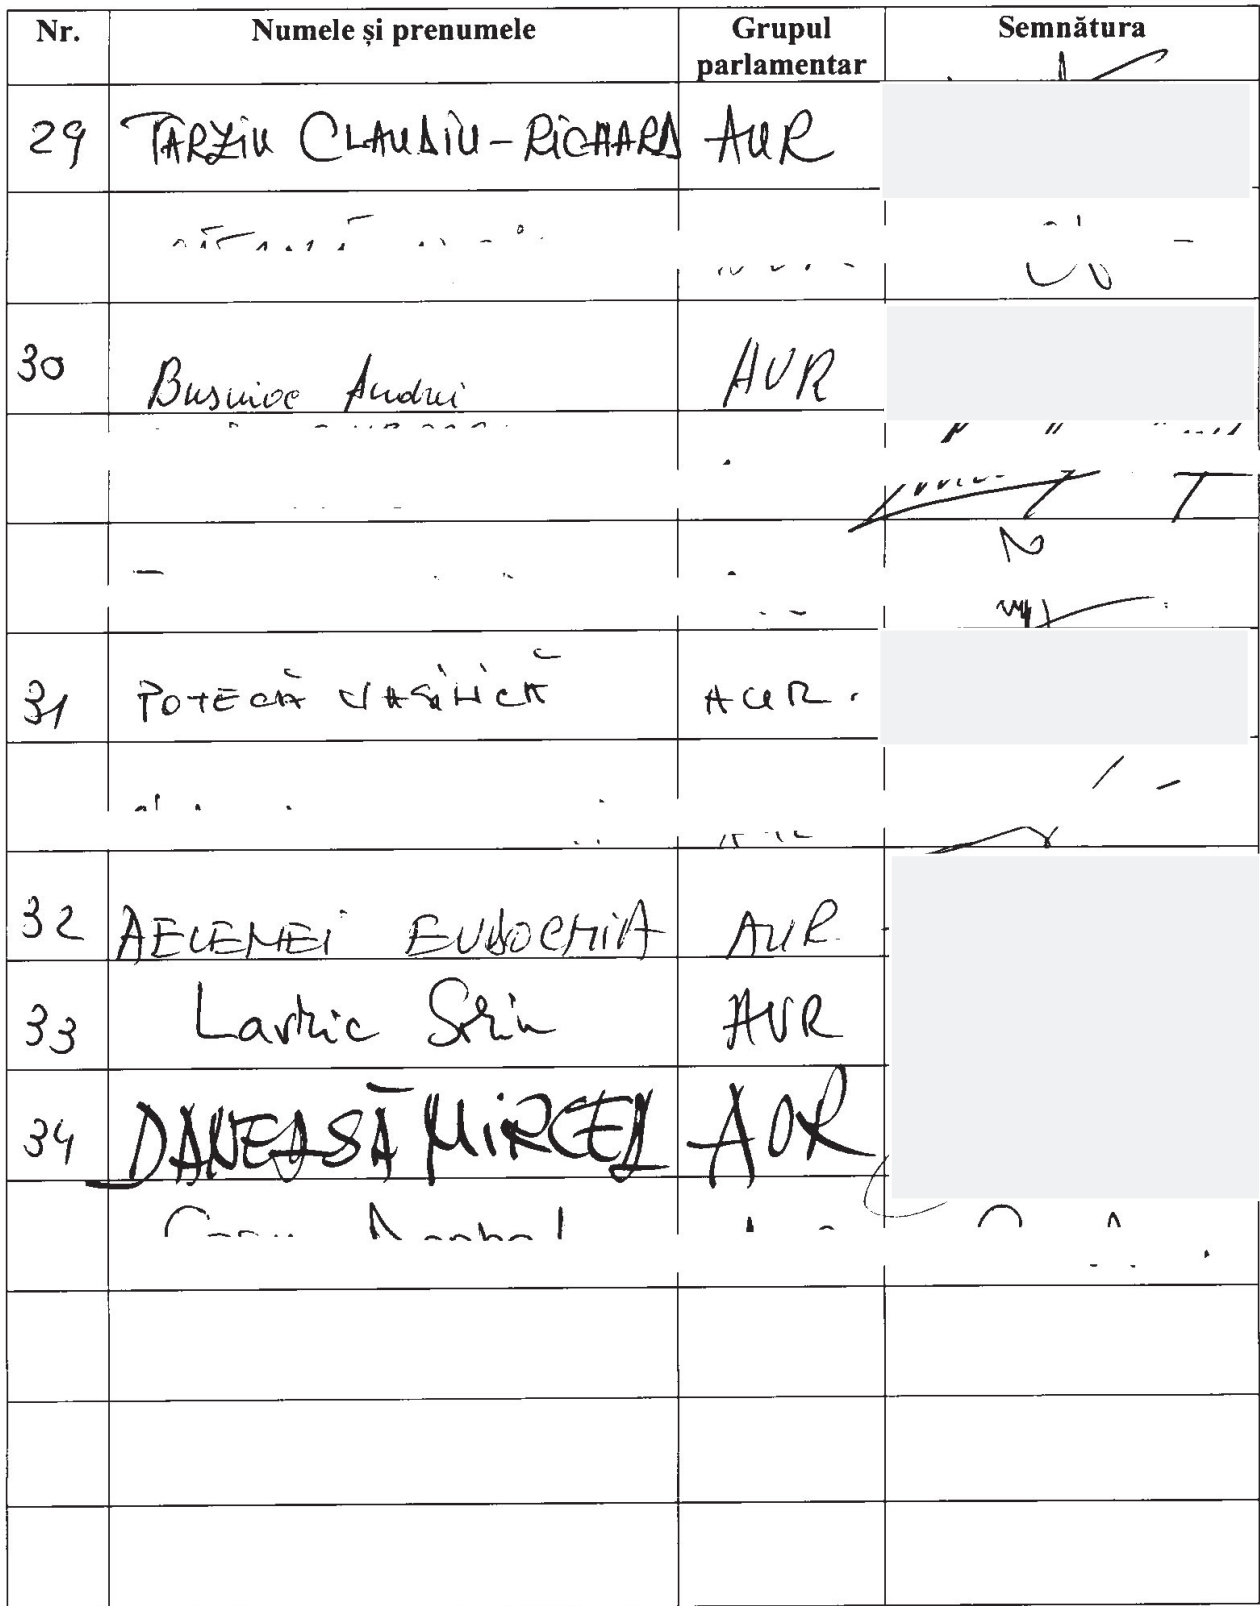 Nr. Numele și prenumele Grupul parlamentar Semnătura
29 TARZIU CLAUDIU-RICHARD AUR
30 Busuioc Andrei AUR
31 POTECĂ VASILICĂ AUR.
32 AELENEI EVDOCHIA AUR
33 Lavric Sorin AUR
34 DANEASĂ MIRCEA AUR